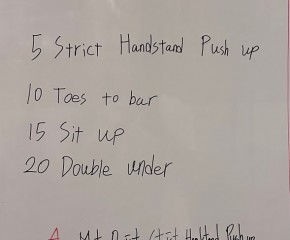 5 Strict Handstand Push up
10 Toes to bar
15 Sit up
20 Double under